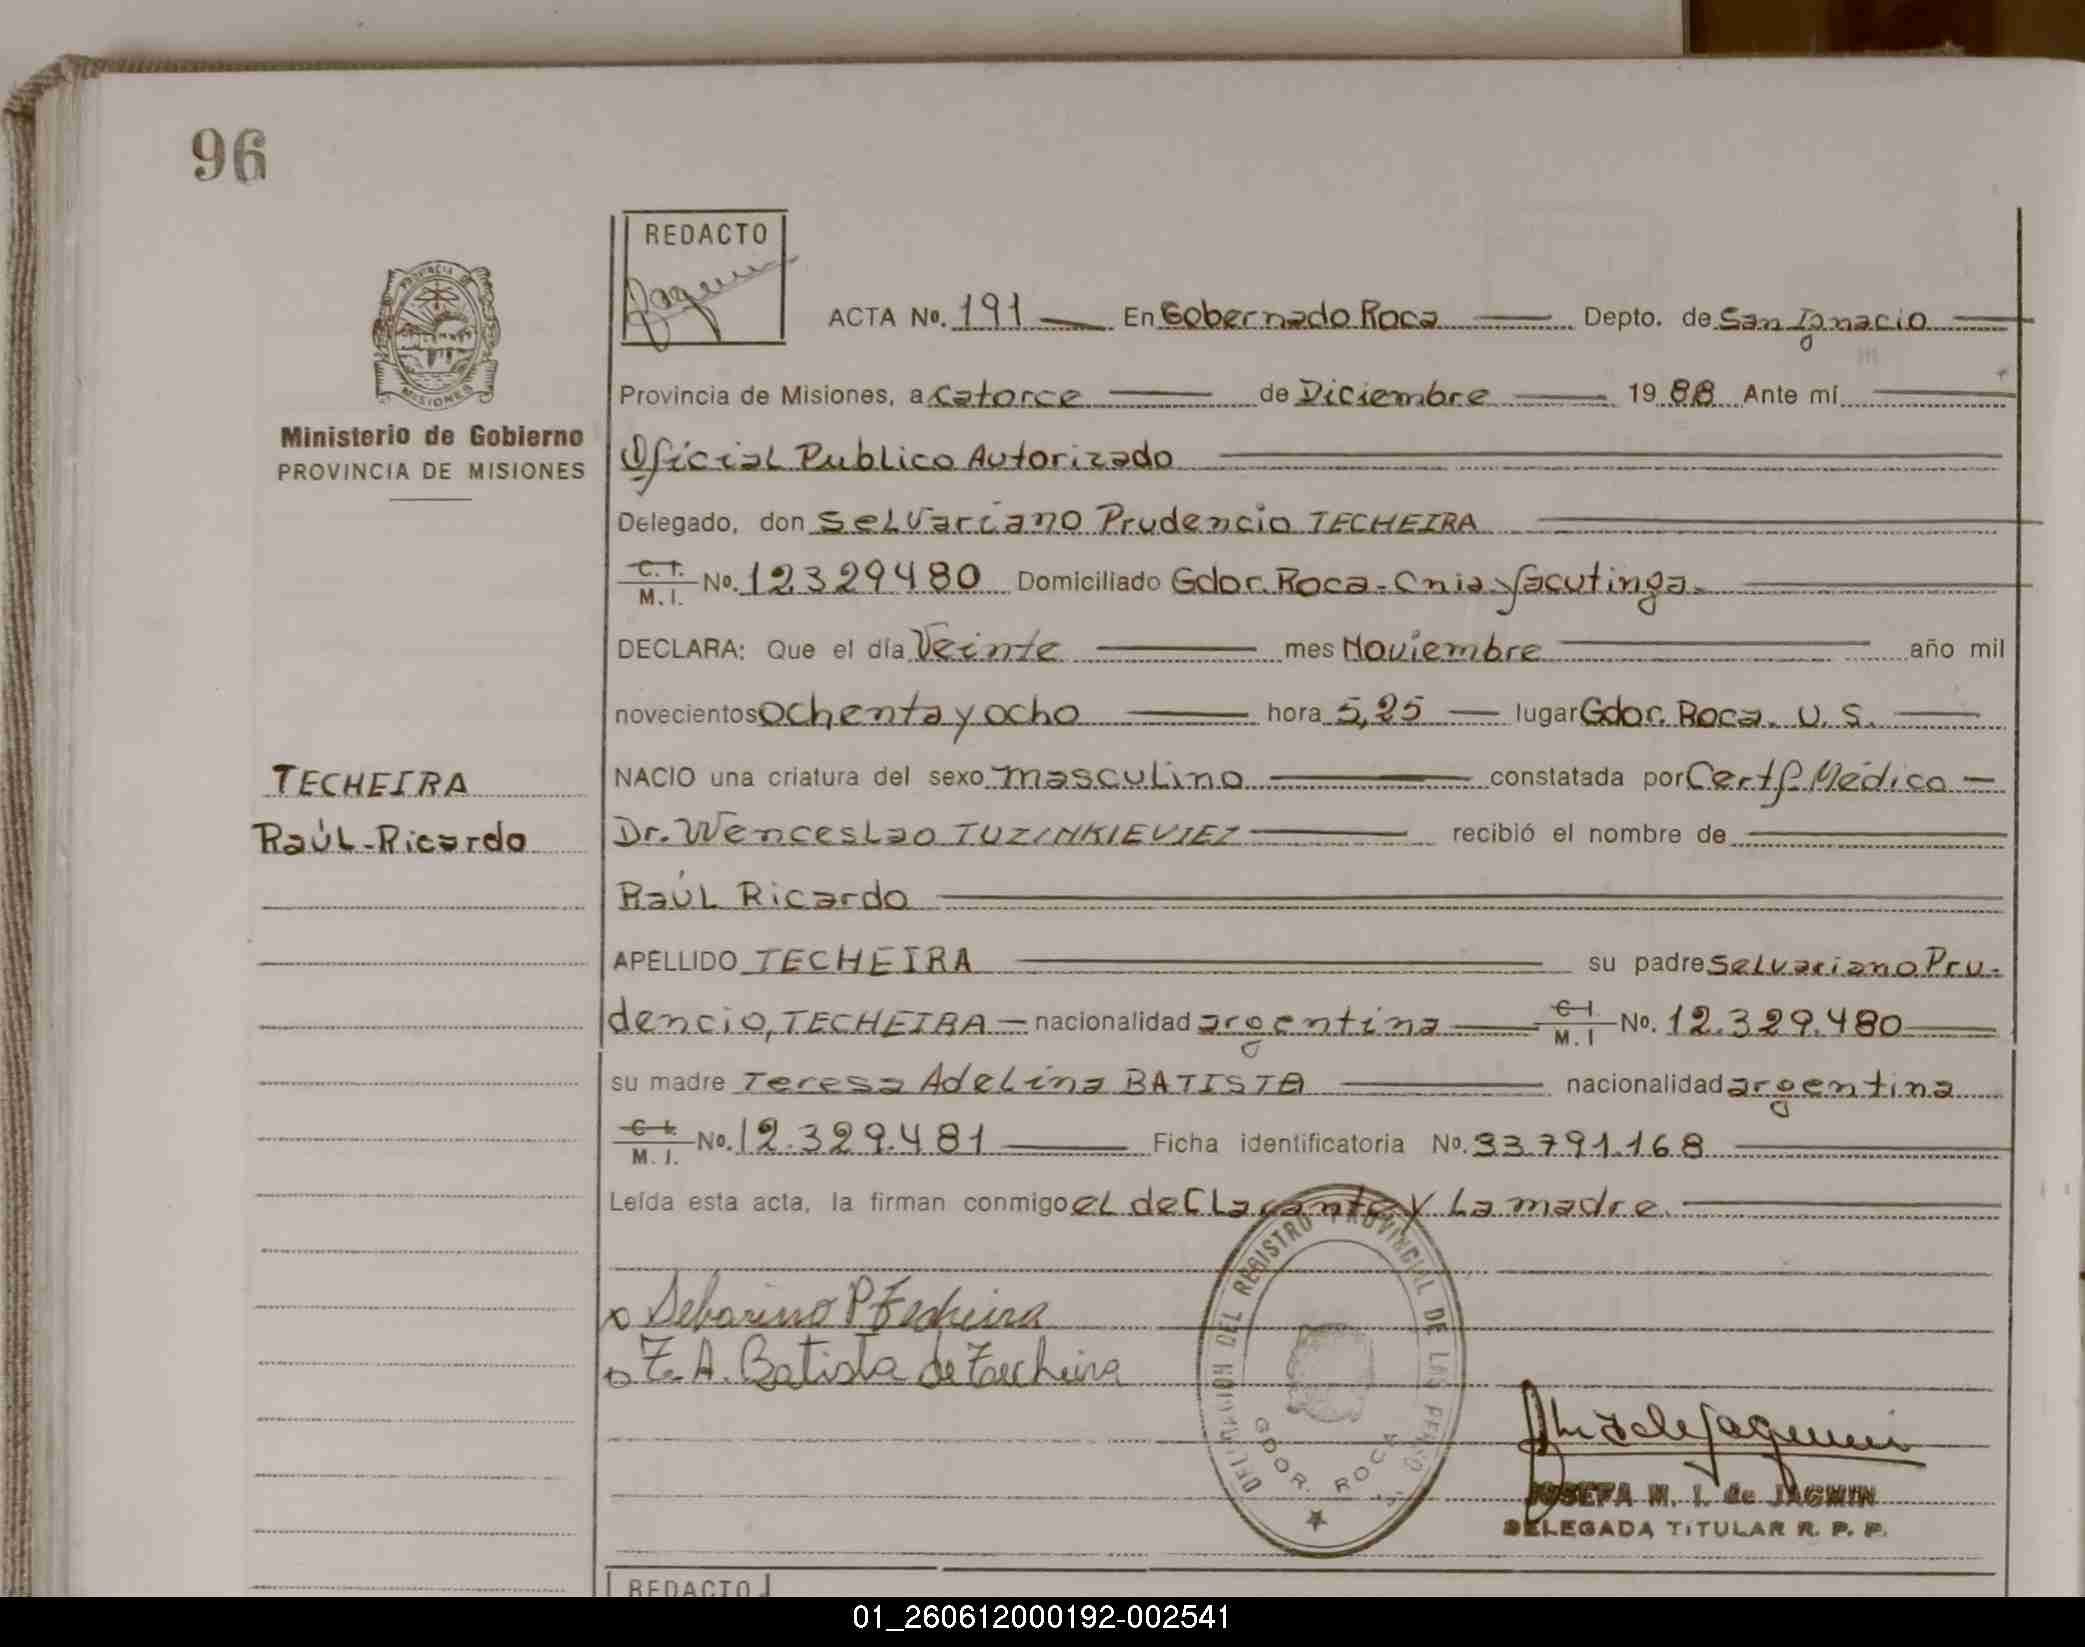 96
REDACTO
PROVINCIA DE
MISIONES
ACTA No. 191 En Gobernado Roca Depto. de San Ignacio
Provincia de Misiones, a catorce de Diciembre 19 88 Ante mí
Ministerio de Gobierno
PROVINCIA DE MISIONES
Oficial Publico Autorizado
Delegado, don Selvariano Prudencio TECHEIRA
C. I. M. I. No. 12329480 Domiciliado Gdor. Roca - Cnia Yacutinga.
DECLARA: Que el día Veinte mes Noviembre año mil
novecientos ochenta y ocho hora 5,25 lugar Gdor. Roca. U. S.
TECHEIRA
Raúl-Ricardo
NACIO una criatura del sexo masculino constatada por Certf. Médico
Dr. Wenceslao TUZINKIEVIEZ recibió el nombre de
Raúl Ricardo
APELLIDO TECHEIRA su padre Selvariano Pru-
dencio, TECHEIRA nacionalidad argentina C I M. I No. 12.329.480
su madre Teresa Adelina BATISTA nacionalidad argentina
C I. M. I. No. 12.329.481 Ficha identificatoria No. 33.791.168
Leída esta acta, la firman conmigo el declarante y La madre.
P Techeira
T. A. Batista de Techeira
DELEGACION DEL REGISTRO PROVINCIAL DE LAS PERSONAS
GDOR. ROCA
JOSEFA M. I. de JACMIN
DELEGADA TITULAR R. P. P.
REDACTO
01_260612000192-002541